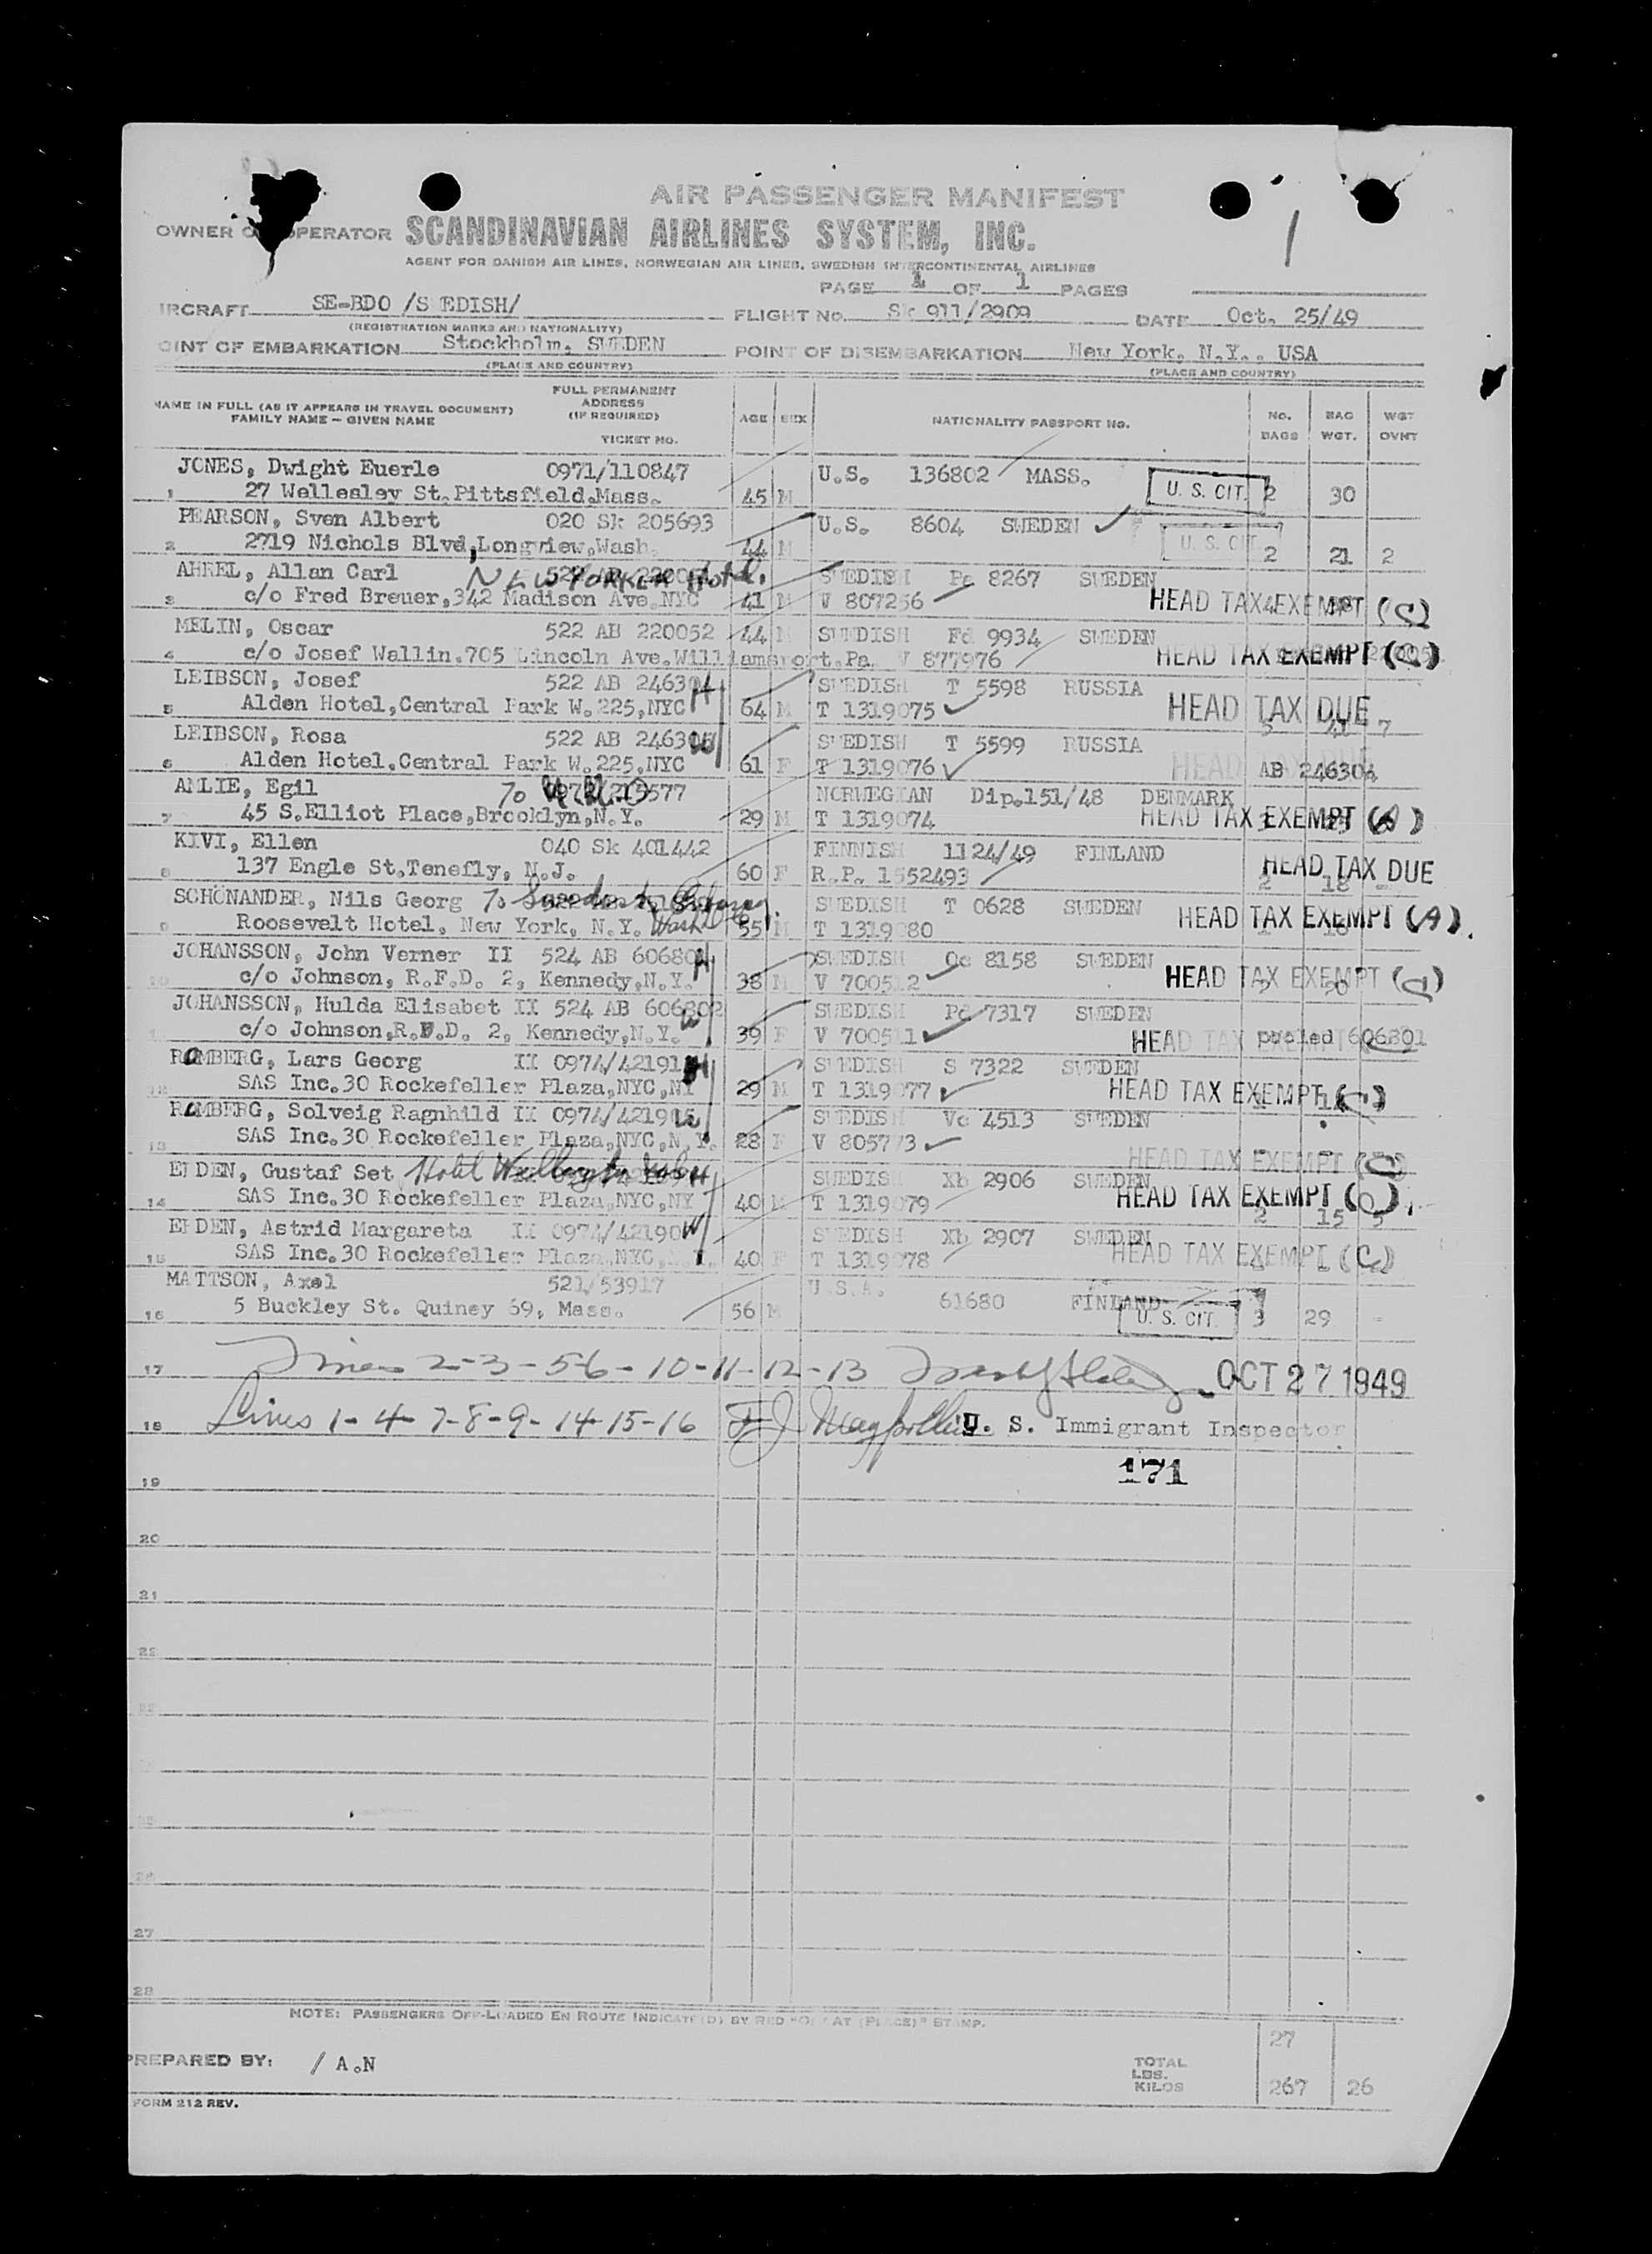 AIR PASSENGER MANIFEST
OWNER OPERATOR SCANDINAVIAN AIRLINES SYSTEM, INC.
AGENT FOR DANISH AIR LINES, NORWEGIAN AIR LINES, SWEDISH INTERCONTINENTAL AIRLINES
1
PAGE 1 OF 1 PAGES
IRCRAFT SE-BDO /S EDISH/ FLIGHT No. Sk 911/2909 DATE Oct. 25/49
(REGISTRATION MARKS AND NATIONALITY)
OINT OF EMBARKATION Stockholm, SWEDEN POINT OF DISEMBARKATION New York, N.Y., USA
(PLACE AND COUNTRY) (PLACE AND COUNTRY)
NAME IN FULL (AS IT APPEARS IN TRAVEL DOCUMENT) FAMILY NAME – GIVEN NAME FULL PERMANENT ADDRESS (IF REQUIRED) TICKET NO. AGE SEX NATIONALITY PASSPORT NO. No. BAGS BAG WGT. WGT OVHT
JONES, Dwight Euerle 0971/110847 U.S. 136802 MASS.
1 27 Wellesley St.Pittsfield,Mass. 45 M U. S. CIT. 2 30
PEARSON, Sven Albert 020 Sk 205693 U.S. 8604 SWEDEN
2 2719 Nichols Blvd,Longview,Wash. 44 M U. S. CIT. 2 21 2
AHREL, Allan Carl NEW YORKER Hotel. SWEDISH Pc 8267 SWEDEN
3 c/o Fred Breuer,342 Madison Ave.NYC 41 M V 807256 HEAD TAX EXEMPT (C)
MELIN, Oscar 522 AB 220052 44 M SWEDISH Fd 9934 SWEDEN
4 c/o Josef Wallin.705 Lincoln Ave.Williamsport.Pa. V 877976 HEAD TAX EXEMPT (C)
LEIBSON, Josef 522 AB 246304 H SWEDISH T 5598 RUSSIA
5 Alden Hotel,Central Park W.225,NYC 64 M T 1319075 HEAD TAX DUE 5 41 7
LEIBSON, Rosa 522 AB 246305 W SWEDISH T 5599 RUSSIA
6 Alden Hotel,Central Park W.225,NYC 61 F T 1319076 HEAD TAX DUE AB 246304
AMLIE, Egil To U.N.O NORWEGIAN Dip.151/48 DENMARK
7 45 S.Elliot Place,Brooklyn,N.Y. 29 M T 1319074 HEAD TAX EXEMPT (A)
KIVI, Ellen 040 Sk 401442 FINNISH 1124/49 FINLAND
8 137 Engle St.Tenefly, N.J. 60 F R.P. 1552493 HEAD TAX DUE 2 18 -
SCHÖNANDER, Nils Georg To SWEDISH T 0628 SWEDEN
9 Roosevelt Hotel, New York, N.Y. 55 M T 1319080 HEAD TAX EXEMPT (A).
JOHANSSON, John Verner II 524 AB 606801 H SWEDISH Oc 8158 SWEDEN
10 c/o Johnson, R.F.D. 2, Kennedy,N.Y. 38 M V 700512 HEAD TAX EXEMPT (C) 2 20
JOHANSSON, Hulda Elisabet II 524 AB 606802 W SWEDISH Pd 7317 SWEDEN
11 c/o Johnson,R.F.D. 2, Kennedy,N.Y. 39 F V 700511 HEAD TAX pooled 606801
RAMBERG, Lars Georg II 0974/42191 H SWEDISH S 7322 SWEDEN
12 SAS Inc.30 Rockefeller Plaza,NYC,NY 29 M T 1319077 HEAD TAX EXEMPT (C)
RAMBERG, Solveig Ragnhild II 0974/42190 W SWEDISH Vc 4513 SWEDEN
13 SAS Inc.30 Rockefeller Plaza,NYC,N.Y. 28 F V 805773 HEAD TAX EXEMPT (C)
EHDEN, Gustaf Set Hotel H SWEDISH Xb 2906 SWEDEN
14 SAS Inc.30 Rockefeller Plaza,NYC,NY 40 M T 1319079 HEAD TAX EXEMPT (C) 2 15 5
EHDEN, Astrid Margareta II 0974/42190 W SWEDISH Xb 2907 SWEDEN
15 SAS Inc.30 Rockefeller Plaza,NYC, 40 F T 1319078 HEAD TAX EXEMPT (C)
MATTSON, Axel 521/53917 U.S.A.
16 5 Buckley St. Quincy 69, Mass. 56 M 61680 FINLAND U. S. CIT. 3 29 -
17 Lines 2-3-5-6-10-11-12-13 OCT 27 1949
18 Lines 1-4-7-8-9-14-15-16 U. S. Immigrant Inspector
171
19
20
21
22
23
25
26
27
28
NOTE: PASSENGERS OFF-LOADED EN ROUTE INDICATE(D) BY RED "OFF AT (PLACE)" STAMP.
27
PREPARED BY: / A.N TOTAL LBS. KILOS 267 26
FORM 212 REV.